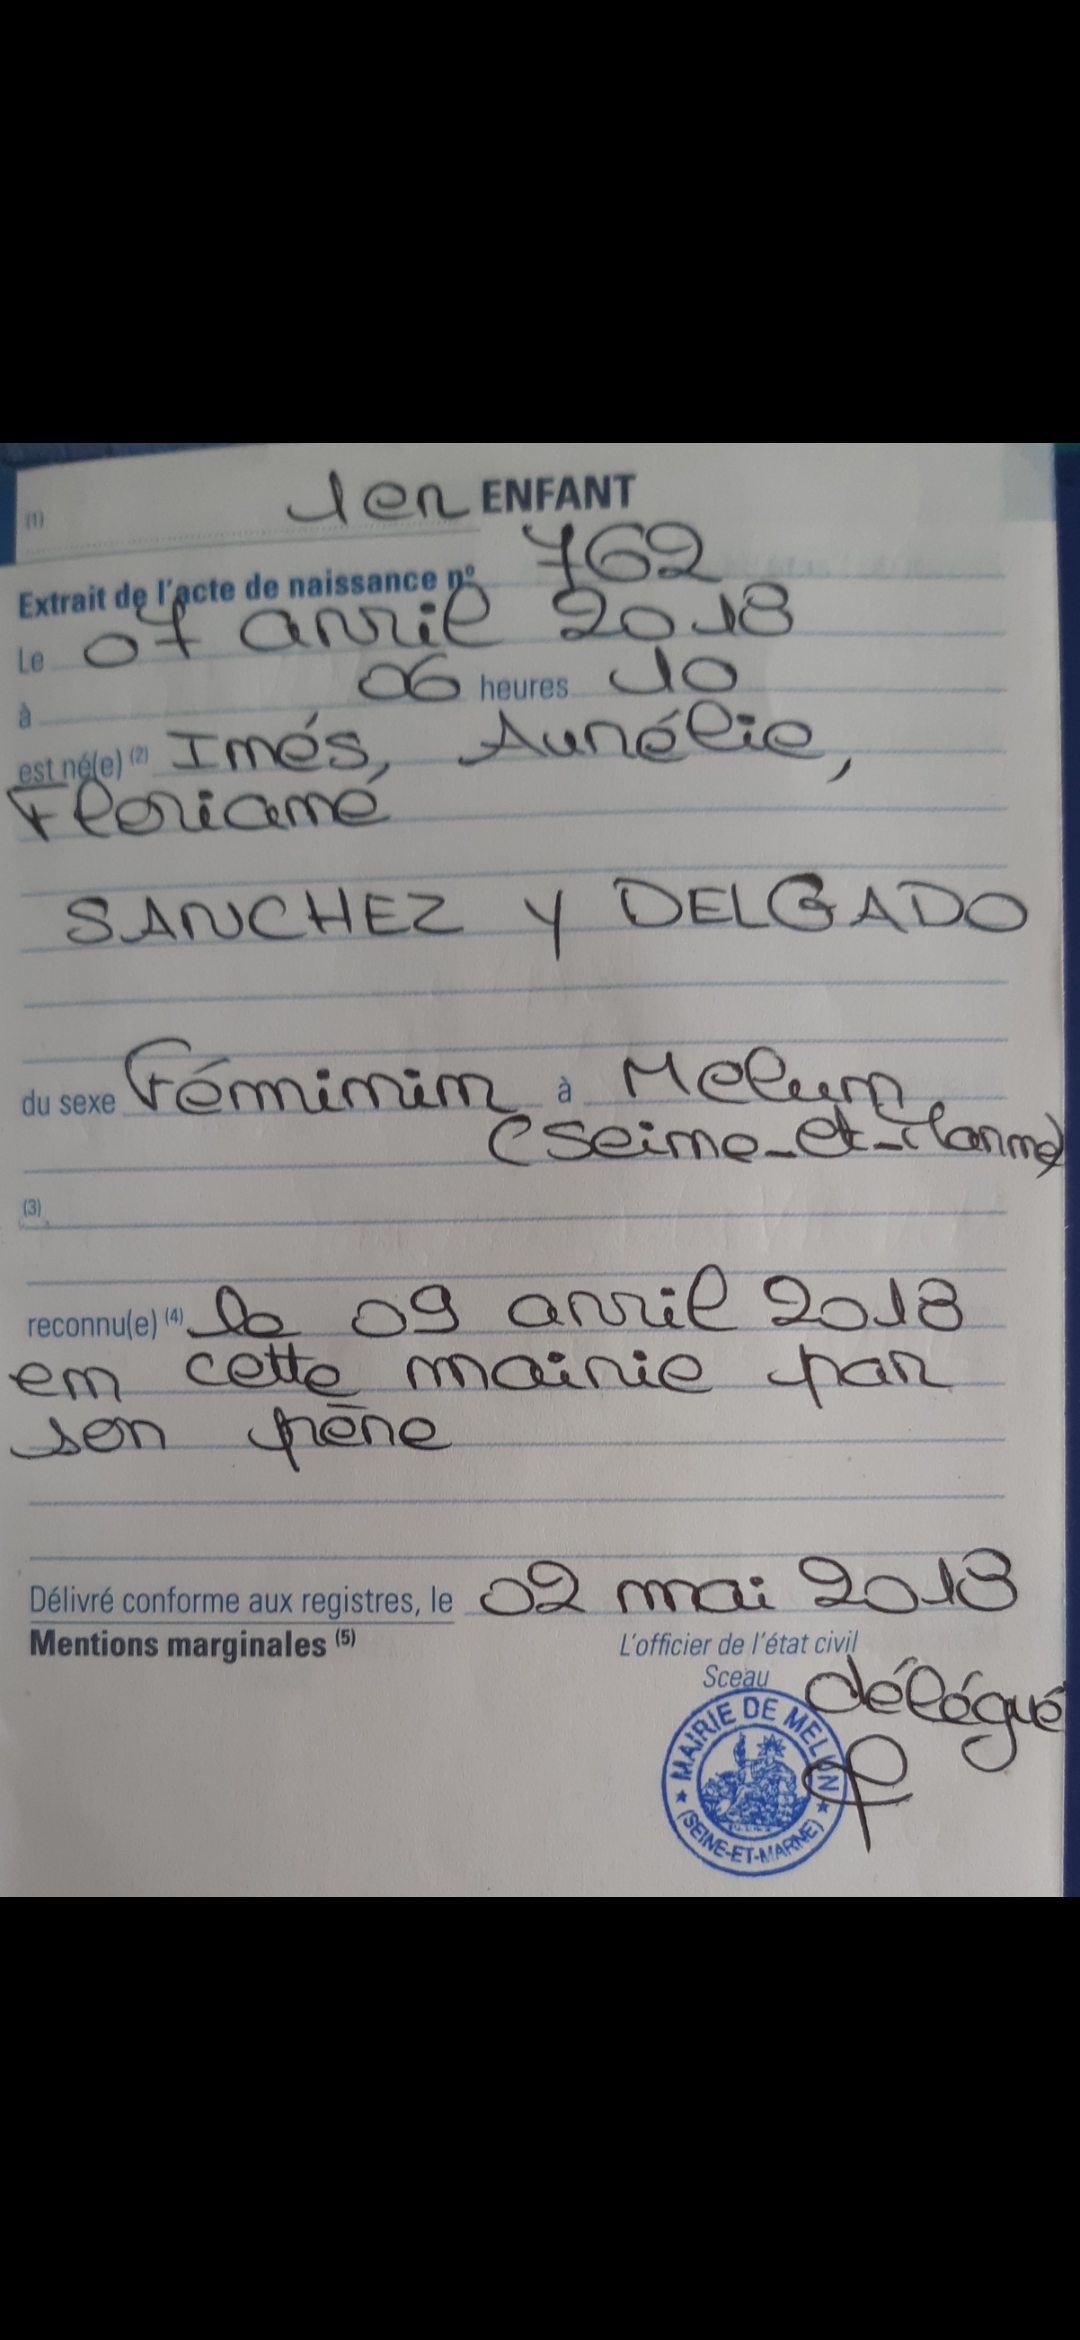 (1) 1er ENFANT
Extrait de l'acte de naissance n° 762
Le 07 avril 2018
à 06 heures 10
est né(e) (2) Inés, Aurélie,
Floriane
SANCHEZ y DELGADO
du sexe Féminin à Melun
(Seine-et-Marne)
(3)
reconnu(e) (4) le 09 avril 2018
en cette mairie par
son père
Délivré conforme aux registres, le 02 mai 2018
Mentions marginales (5)
L'officier de l'état civil
Sceau délégué
MAIRIE DE MELUN
(SEINE-ET-MARNE)